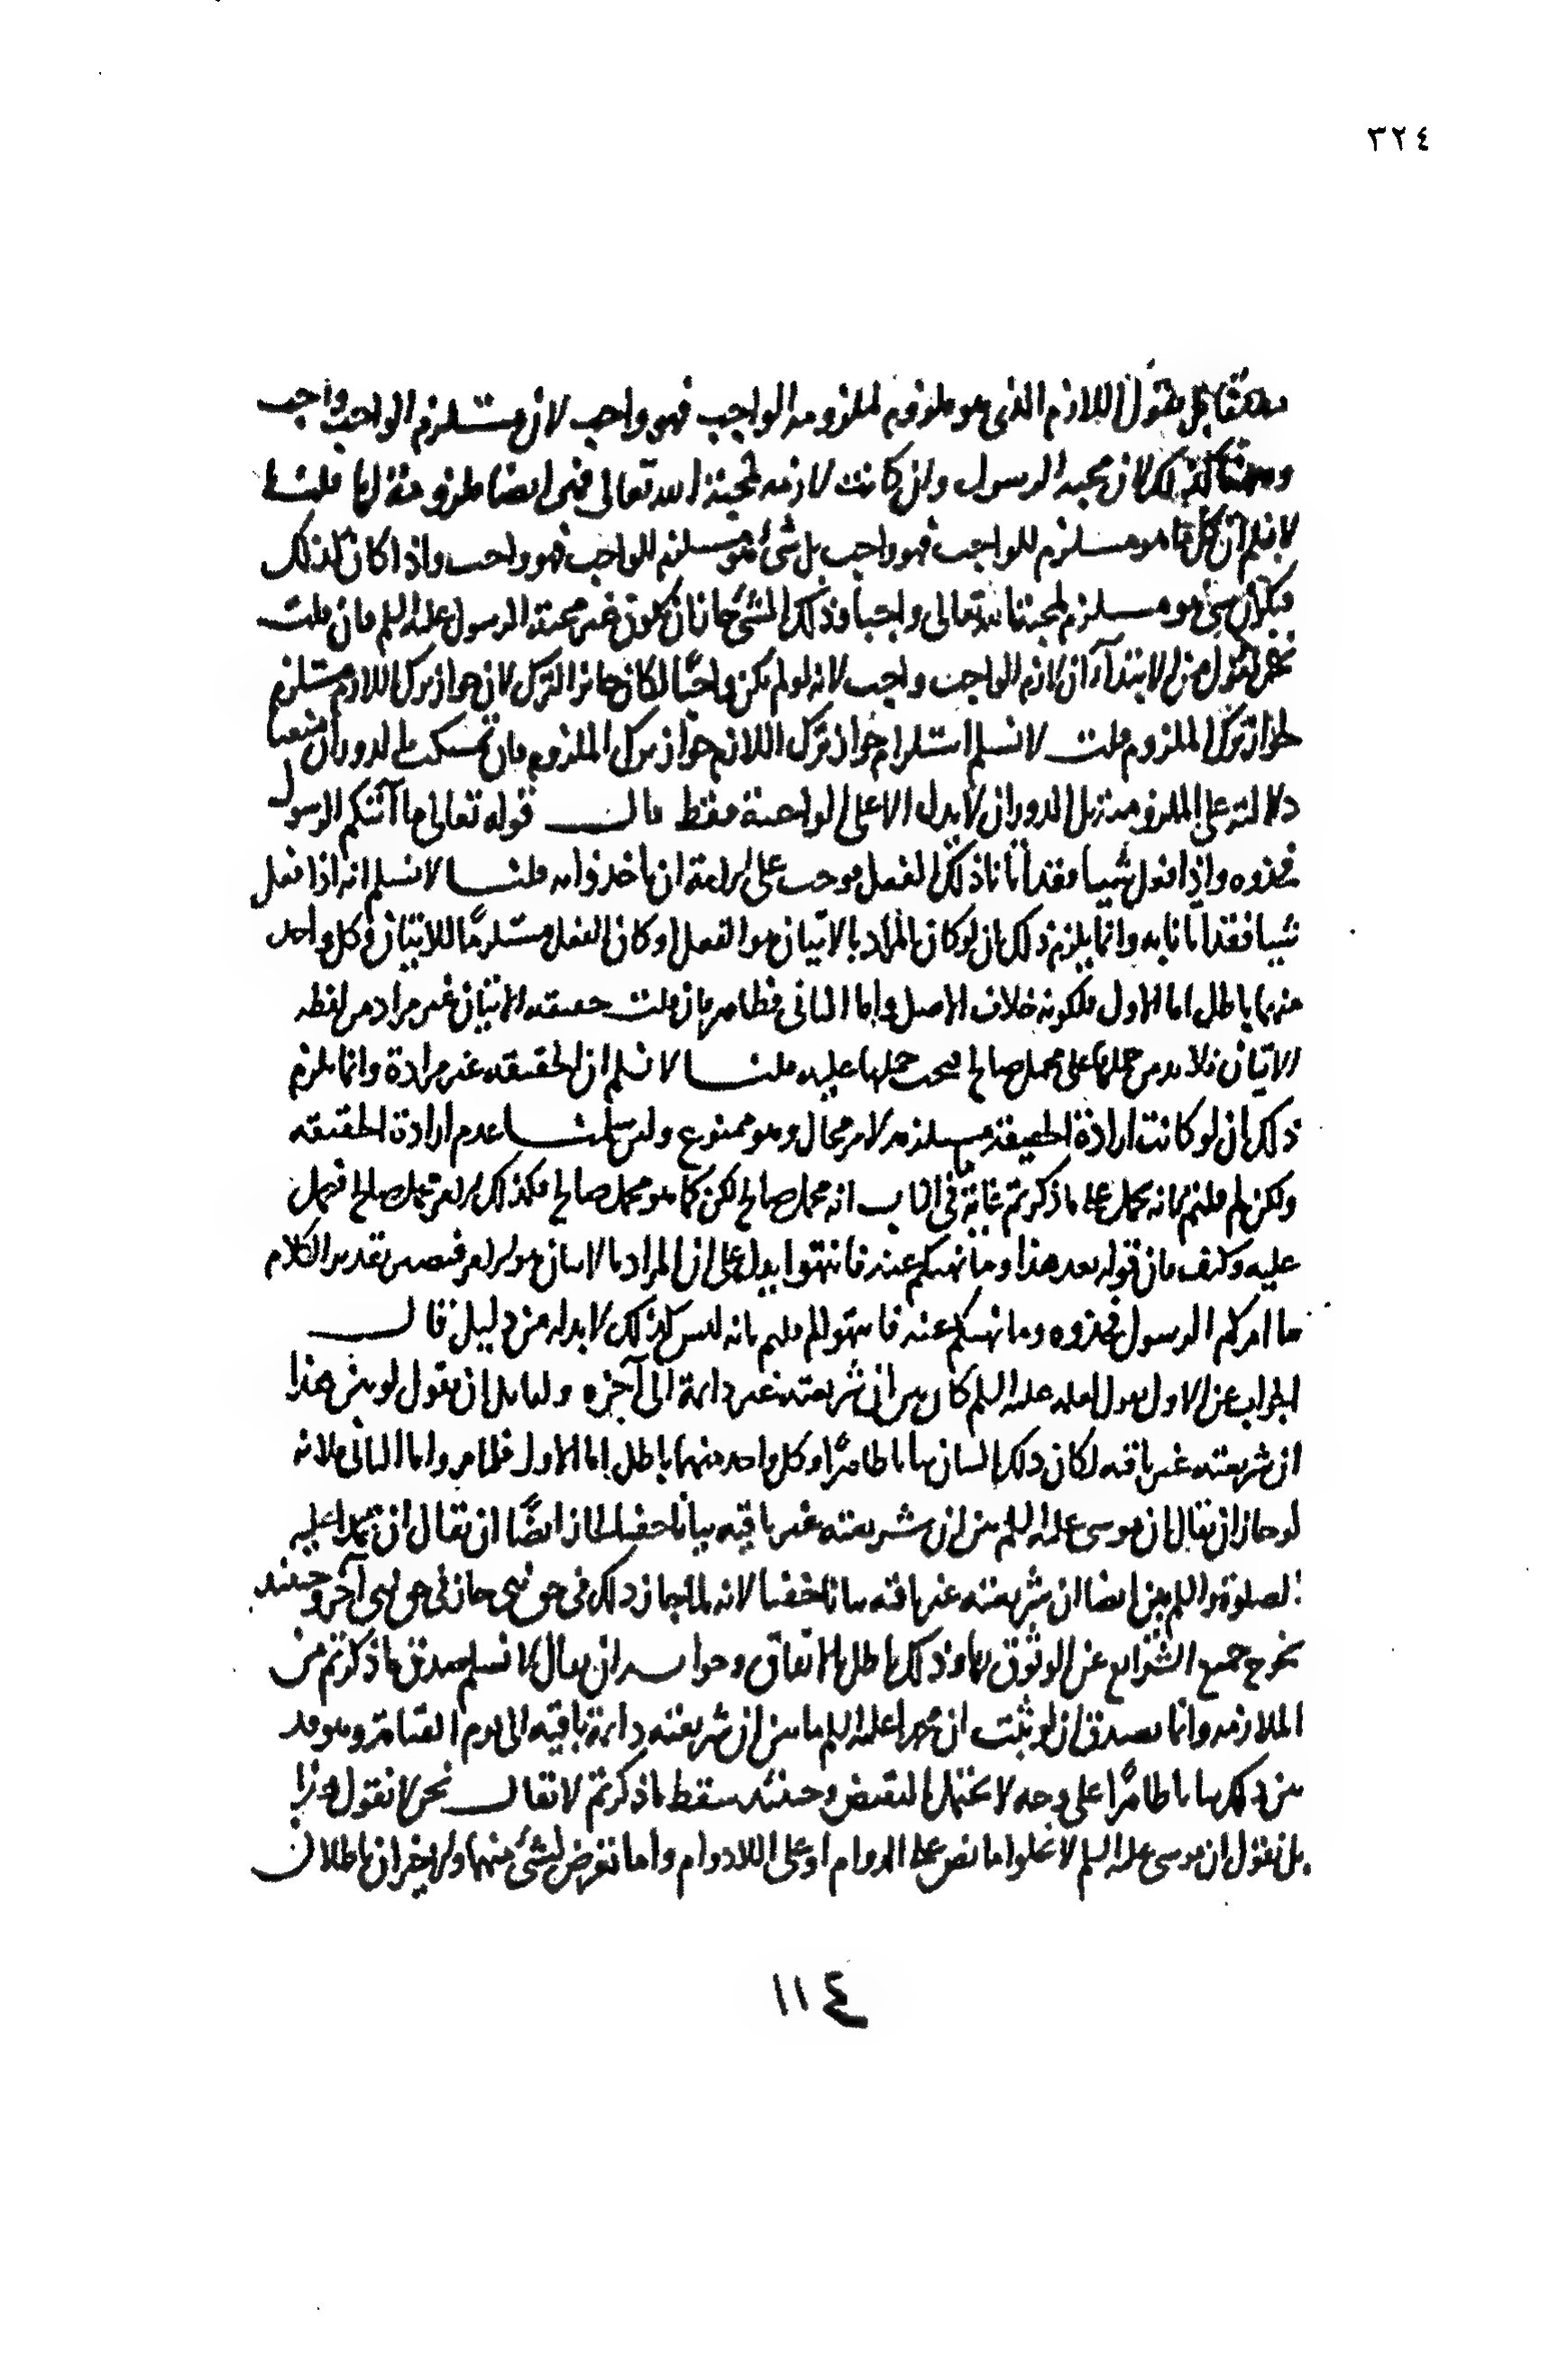 ٣٢٤
نقول اللازم الذي هو ملزوم لملزومه الواجب فهو واجب لان مستلزم الواجب واجب
وههنا كذلك لان محبه الرسول وان كانت لازمه لمحبة الله تعالى فهي ايضا ملزومة لها قلنا
لا نسلم ان كل ما هو مستلزم للواجب فهو واجب بل شئ هو مستلزم للواجب فهو واجب واذا كان كذلك
فكان شئ هو مستلزم لمحبتنا لله تعالى واجبا وذلك الشئ جاز ان يكون غير محبة الرسول عليه السلم فان قلت
نحن نقول من الابتدآ ان لازم الواجب واجب لانه لو لم يكن واجبًا لكان جائز الترك لان جواز ترك اللازم مستلزم
لجواز ترك الملزوم قلت لا نسلم استلزام جواز ترك اللازم جواز ترك الملزوم فان تمسكت بالدوران منعنا
دلالته على الملزومية بل الدوران لا يدل الا على الواحدة فقط قال قوله تعالى ما آتىكم الرسول
فخذوه واذا فعل شيا فقد اتانا ذلك الفعل فوجب على الامة ان ياخذوا به قلنا لا نسلم انه اذا فعل
شيا فقد اتانا به وانما يلزم ذلك ان لو كان المراد بالاتيان هو الفعل او كان الفعل مستلزمًا للاتيان وكل واحد
منهما باطل اما الاول فلكونه خلاف الاصل واما الثاني فظاهر فان قلت حقيقه الاتيان غير مراد من لفظه
الاتيان فلا بد من حملها على محمل صالح فيجب حملها عليه قلنا لا نسلم ان الحقيقه غير مرادة وانما يلزم
ذلك ان لو كانت ارادة الحقيقة مستلزمه لامر محال وهو ممنوع ولئن سلمنا عدم ارادة الحقيقه
ولكن لم قلتم بانه يحمل على ما ذكرتم غاية في الباب انه محمل صالح لكن كما هو محمل صالح فكذلك الامر محمل صالح فيحمل
عليه وكيف فان قوله بعد هذا وما نهىكم عنه فانتهوا يدل على ان المراد بالاتيان هو الامر فيصير تقدير الكلام
ما امركم الرسول فخذوه وما نهىكم عنه فانتهوا لم قلتم بانه ليس كذلك لا بد له من دليل قال
الجواب عن الاول نقول لعله عليه السلم كان بين ان شريعته غير دايمة الى آخره ولقايل ان يقول لو بين هذا
ان شريعته غير باقيه لكان ذلك البيان بيانا ظاهرًا وكل واحد منهما باطل اما الاول فظاهر واما الثاني فلانه
لو جاز ان يقال ان موسى عليه السلم بين ان شريعته غير باقيه بيانًا خفيا لجاز ايضًا ان يقال ان محمدا عليه
الصلوة والسلم بين ايضا ان شريعته غير باقيه بيانا خفيا لانه لما جاز ذلك في حق نبي جاز في حق نبي آخر وحينئذ
تخرج جميع الشرايع عن الوثوق بها وذلك باطل بالاتفاق وجوابه ان يقال لا نسلم صدق ما ذكرتم من
الملازمه وانما يصدق ان لو ثبت ان محمدا عليه السلم ما بين ان شريعته دايمة باقيه الى يوم القيامة وهو قد
بين ذلك بيانا ظاهرًا على وجه لا يحتمل النقيض وحينئذ سقط ما ذكرتم لا يقال نحن لا نقول هذا
بل نقول ان موسى عليه السلم لا يخلوا اما نص على الدوام او على اللادوام واما تعرض لشئ منهما والاخيران باطلان
١١٤